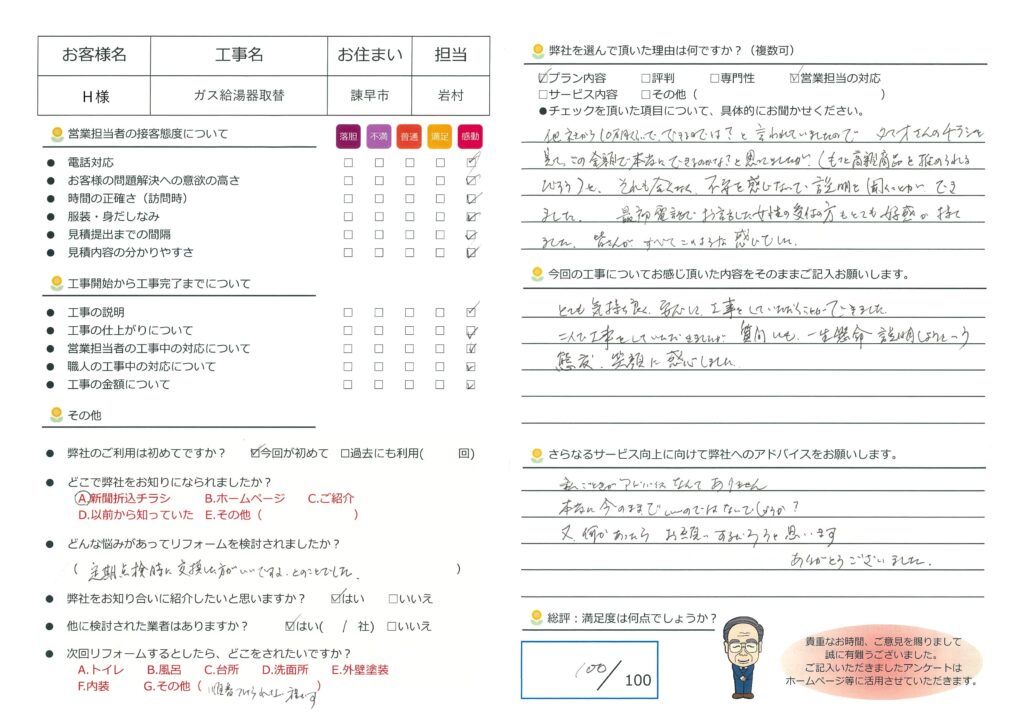 お客様名 工事名 お住まい 担当
H様 ガス給湯器取替 諫早市 岩村
営業担当者の接客態度について 落胆 不満 普通 満足 感動
● 電話対応 □ □ □ □ ☑
● お客様の問題解決への意欲の高さ □ □ □ □ ☑
● 時間の正確さ（訪問時） □ □ □ □ ☑
● 服装・身だしなみ □ □ □ □ ☑
● 見積提出までの間隔 □ □ □ □ ☑
● 見積内容の分かりやすさ □ □ □ □ ☑
工事開始から工事完了までについて
● 工事の説明 □ □ □ □ ☑
● 工事の仕上がりについて □ □ □ □ ☑
● 営業担当者の工事中の対応について □ □ □ □ ☑
● 職人の工事中の対応について □ □ □ □ ☑
● 工事の金額について □ □ □ □ ☑
その他
● 弊社のご利用は初めてですか？ ☑今回が初めて □過去にも利用( 回)
● どこで弊社をお知りになられましたか？
A.新聞折込チラシ B.ホームページ C.ご紹介
D.以前から知っていた E.その他（ ）
● どんな悩みがあってリフォームを検討されましたか？
（ 定期点検時に交換した方がいいですよ、とのことでした。 ）
● 弊社をお知り合いに紹介したいと思いますか？ ☑はい □いいえ
● 他に検討された業者はありますか？ ☑はい( / 社) □いいえ
● 次回リフォームするとしたら、どこをされたいですか？
A.トイレ B.風呂 C.台所 D.洗面所 E.外壁塗装
F.内装 G.その他（ ）
弊社を選んで頂いた理由は何ですか？（複数可）
☑プラン内容 □評判 □専門性 ☑営業担当の対応
□サービス内容 □その他（ ）
●チェックを頂いた項目について、具体的にお聞かせください。
他社から10万円くらいで、できるのでは？と言われていましたので さんのチラシを
見て、この金額で本当にできるのかな？と思ってましたが、（もっと高額商品を推められる
だろう）と、それも全くなく、不安を感じないで説明を聞くことができ
ました。 最初電話でお話した女性の受付の方もとても好感が持て
ました。皆さんがすべてこのような感じでした。
今回の工事についてお感じ頂いた内容をそのままご記入お願いします。
とても気持ち良く、安心して、工事をしていただくことができました。
二人で工事をしていただきましたが 質問にも、一生懸命説明しようという
態度、笑顔に感心しました。
さらなるサービス向上に向けて弊社へのアドバイスをお願いします。
私ごときがアドバイスなんてありません
本当に今のままでいいのではないでしょうか？
又、何かあったら お世話になるだろうと思います
ありがとうございました。
総評：満足度は何点でしょうか？
100/100
貴重なお時間、ご意見を賜りまして
誠に有難うございました。
ご記入いただきましたアンケートは
ホームページ等に活用させていただきます。